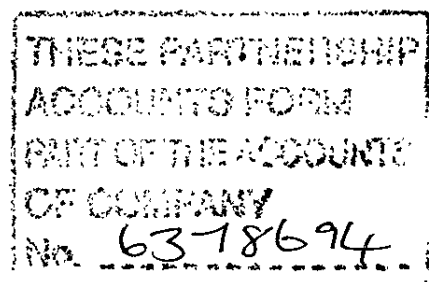 THESE PARTNERSHIP
ACCOUNTS FORM
PART OF THE ACCOUNTS
OF COMPANY
No. 6378694